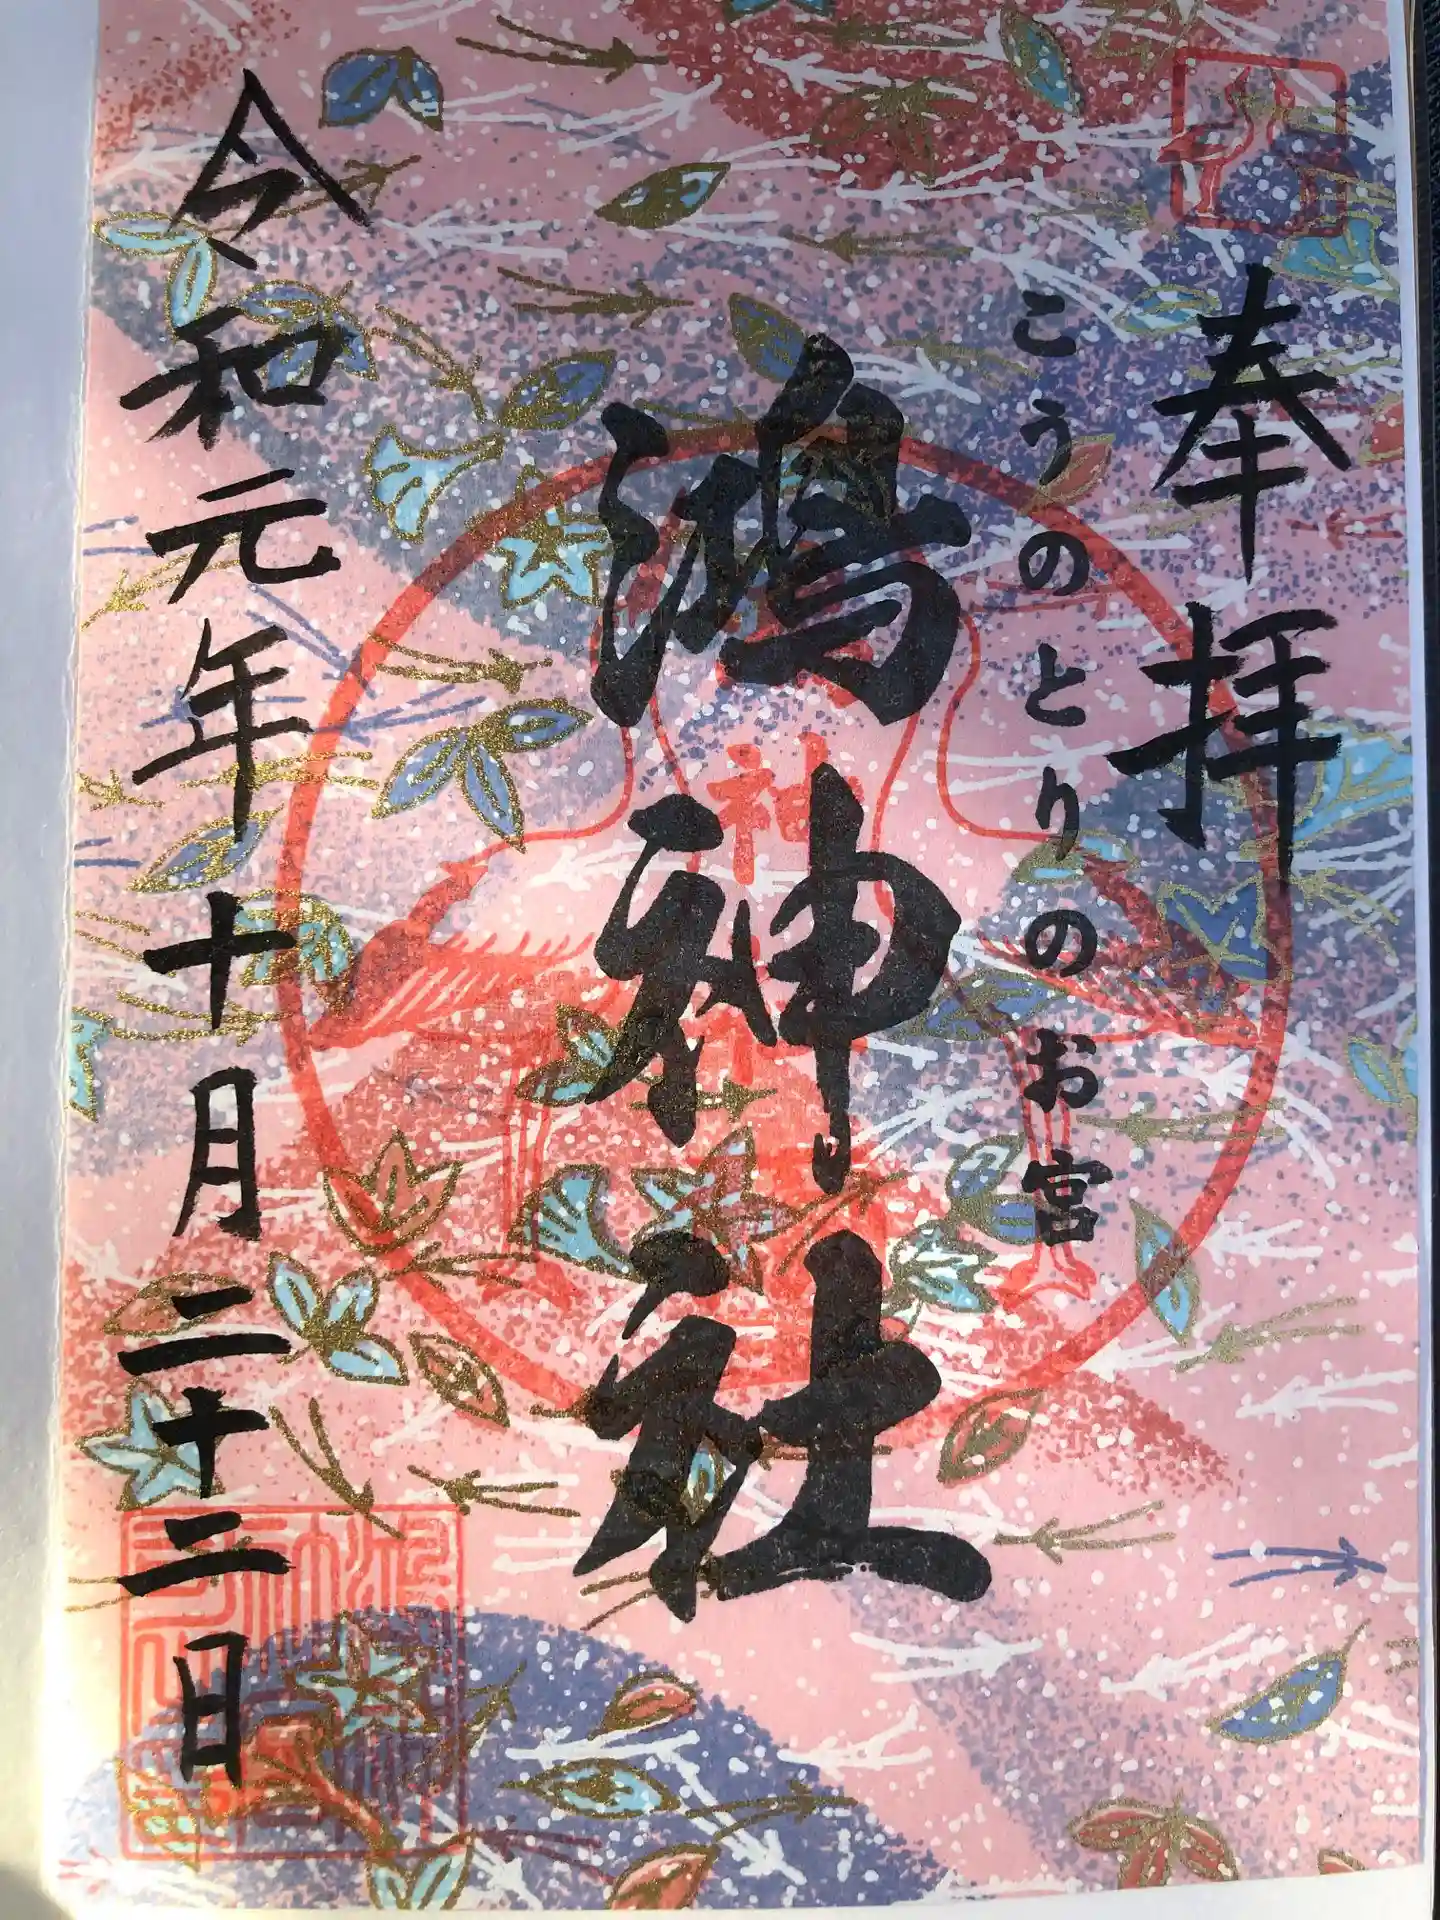 奉拝
こうのとりのお宮
鴻神社
神
令和元年十月二十二日